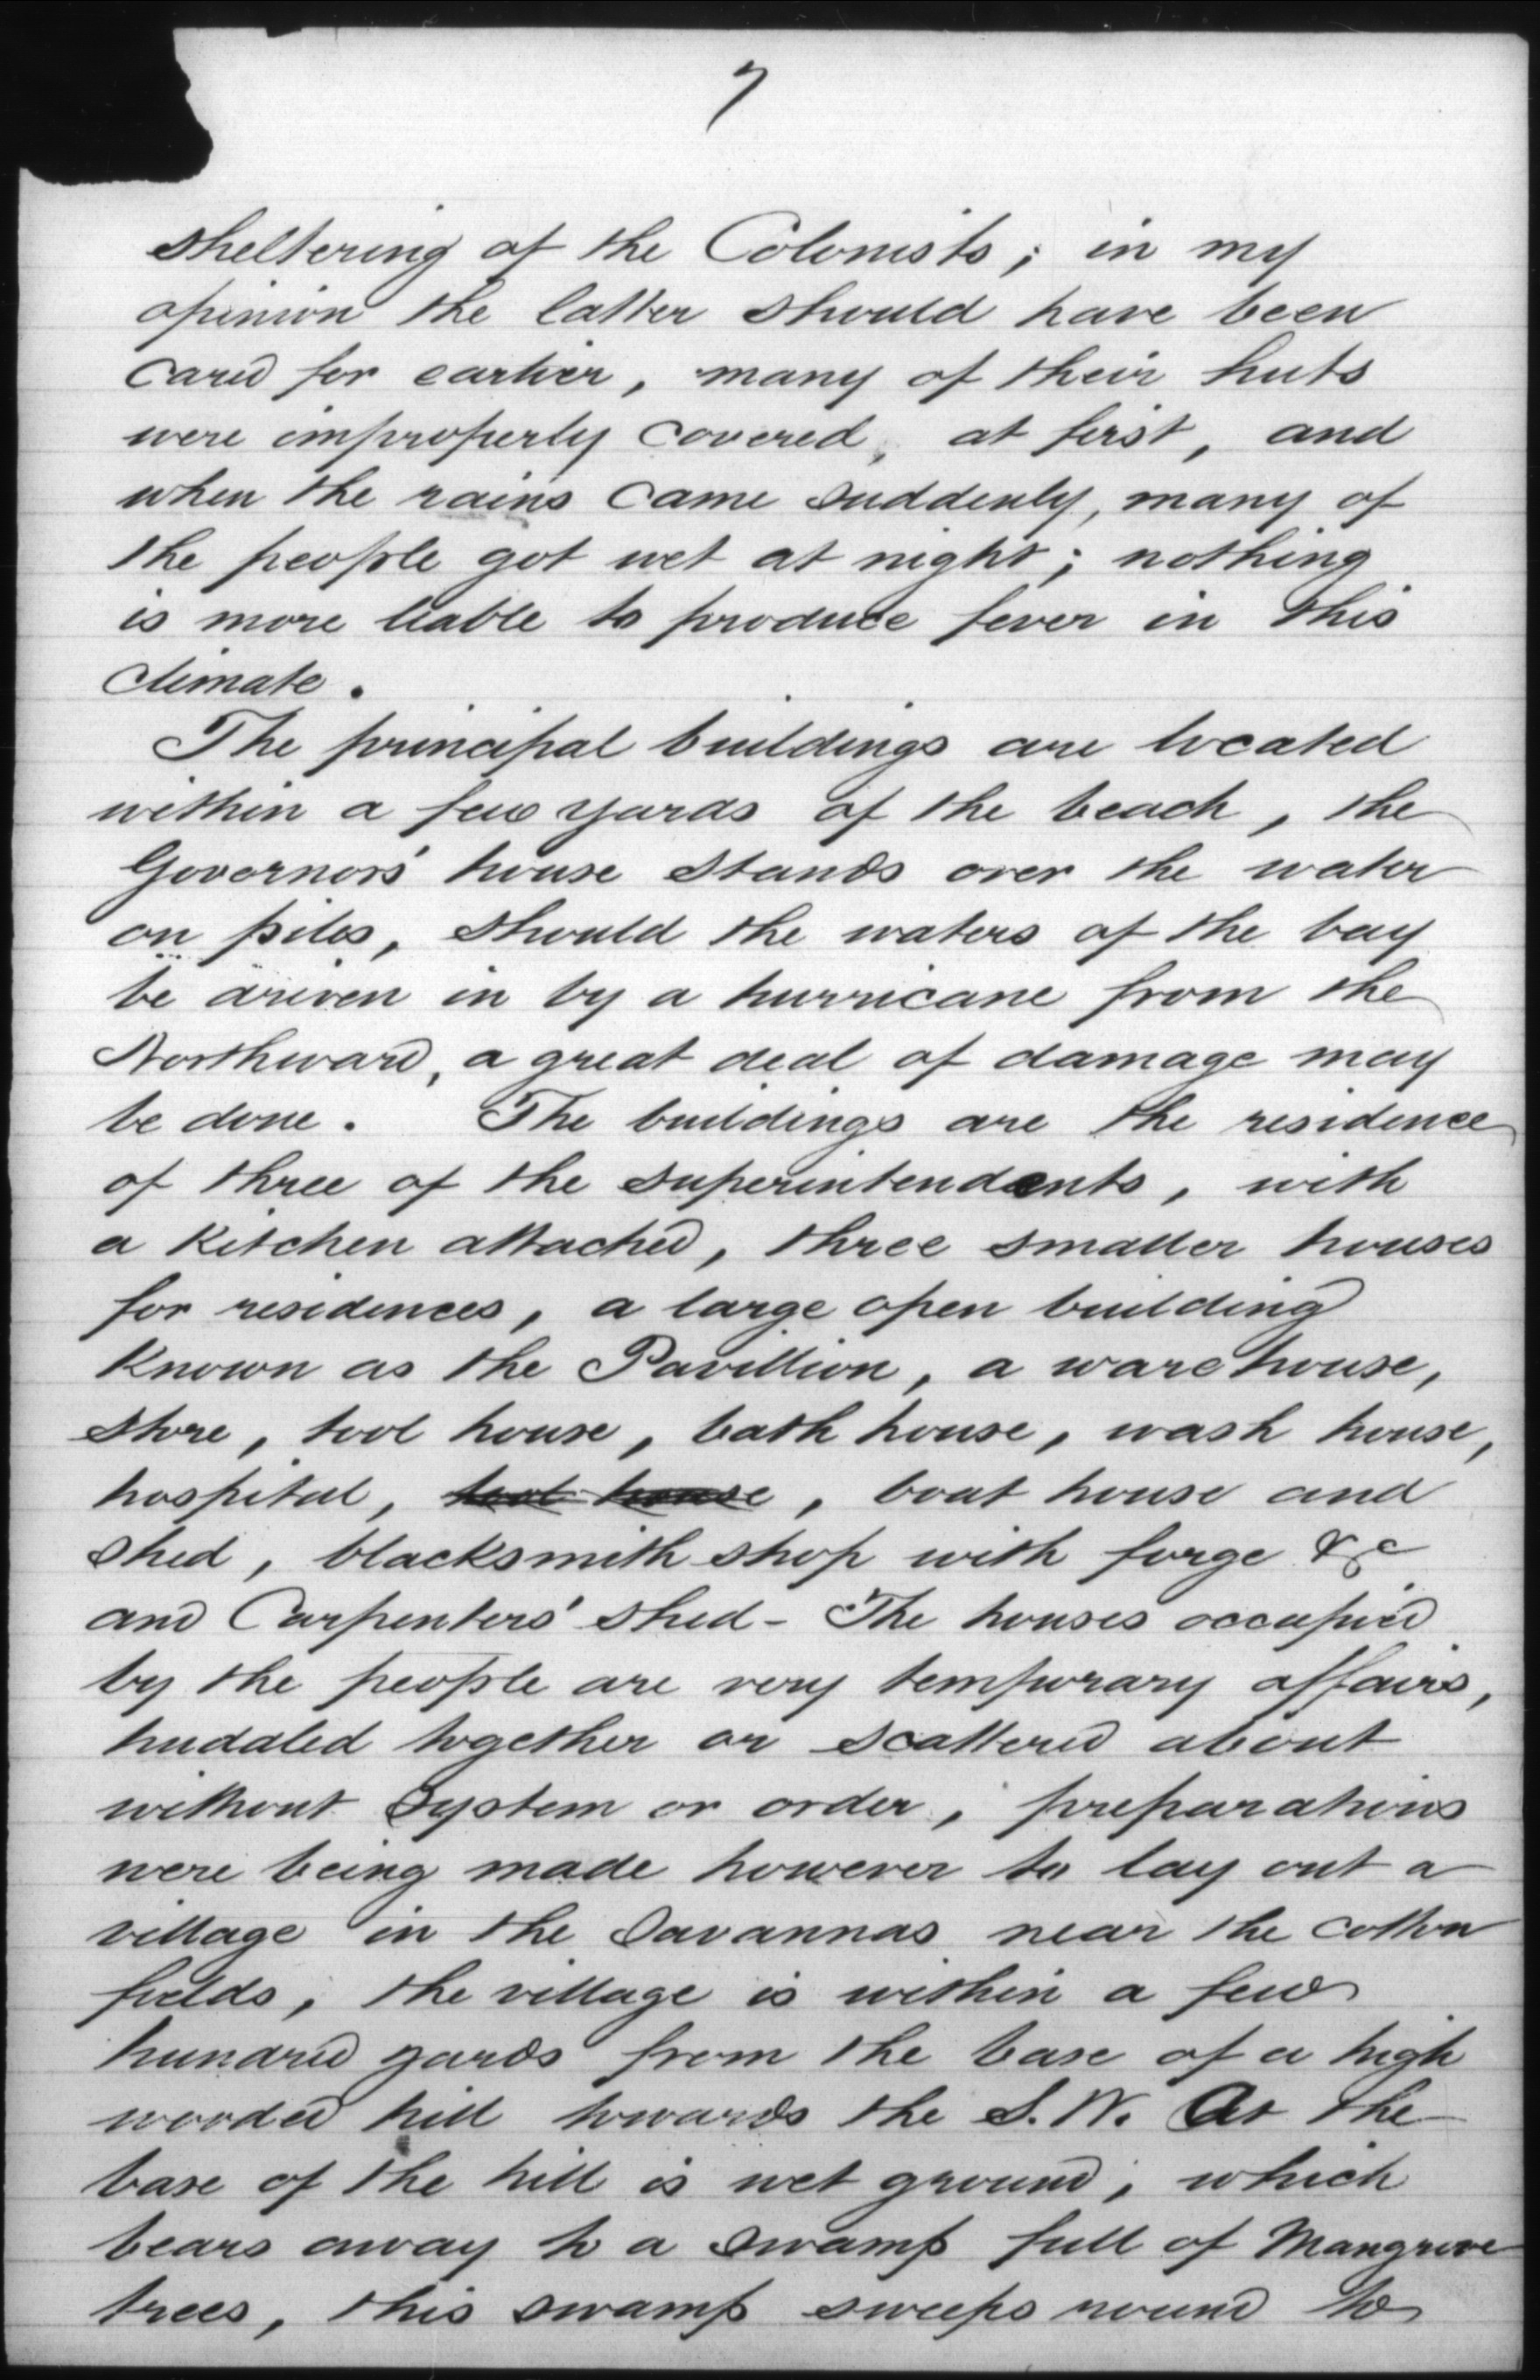 7
sheltering of the Colonists; in my
opinion the latter should have been
cared for earlier, many of their huts
were improperly covered, at first, and
when the rains came suddenly, many of
the people got wet at night; nothing
is more liable to produce fever in this
climate.
The principal buildings are located
within a few yards of the beach, the
Governors' house stands over the water
on piles, should the waters of the bay
be driven in by a hurricane from the
Northward, a great deal of damage may
be done. The buildings are the residence
of three of the superintendents, with
a kitchen attached, three smaller houses
for residences, a large open building
known as the Pavillion, a warehouse,
store, tool house, bath house, wash house,
hospital, tool house, boat house and
shed, blacksmith shop with forge &c
and Carpenters' shed - The houses occupied
by the people are very temporary affairs,
huddled together or scattered about
without system or order, preparations
were being made however to lay out a
village in the Savannas near the cotton
fields, the village is within a few
hundred yards from the base of a high
wooded hill towards the S.W. At the
base of the hill is wet ground, which
bears away to a swamp full of Mangrove
trees, this swamp sweeps round to